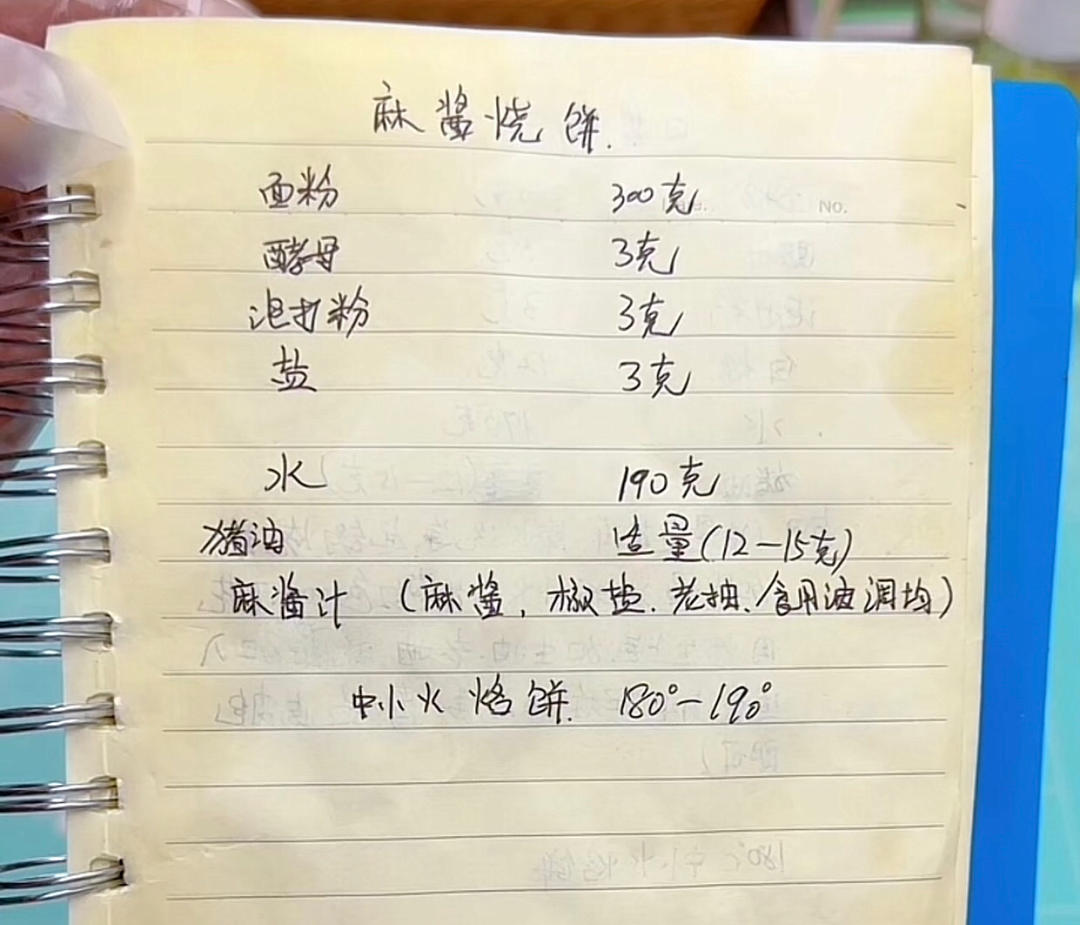 麻酱烧饼.
面粉 300克
酵母 3克
泡打粉 3克
盐 3克
水 190克
猪油 适量(12-15克)
麻酱汁 (麻酱, 椒盐、老抽、食用油调均)
中小火烙饼. 180°-190°